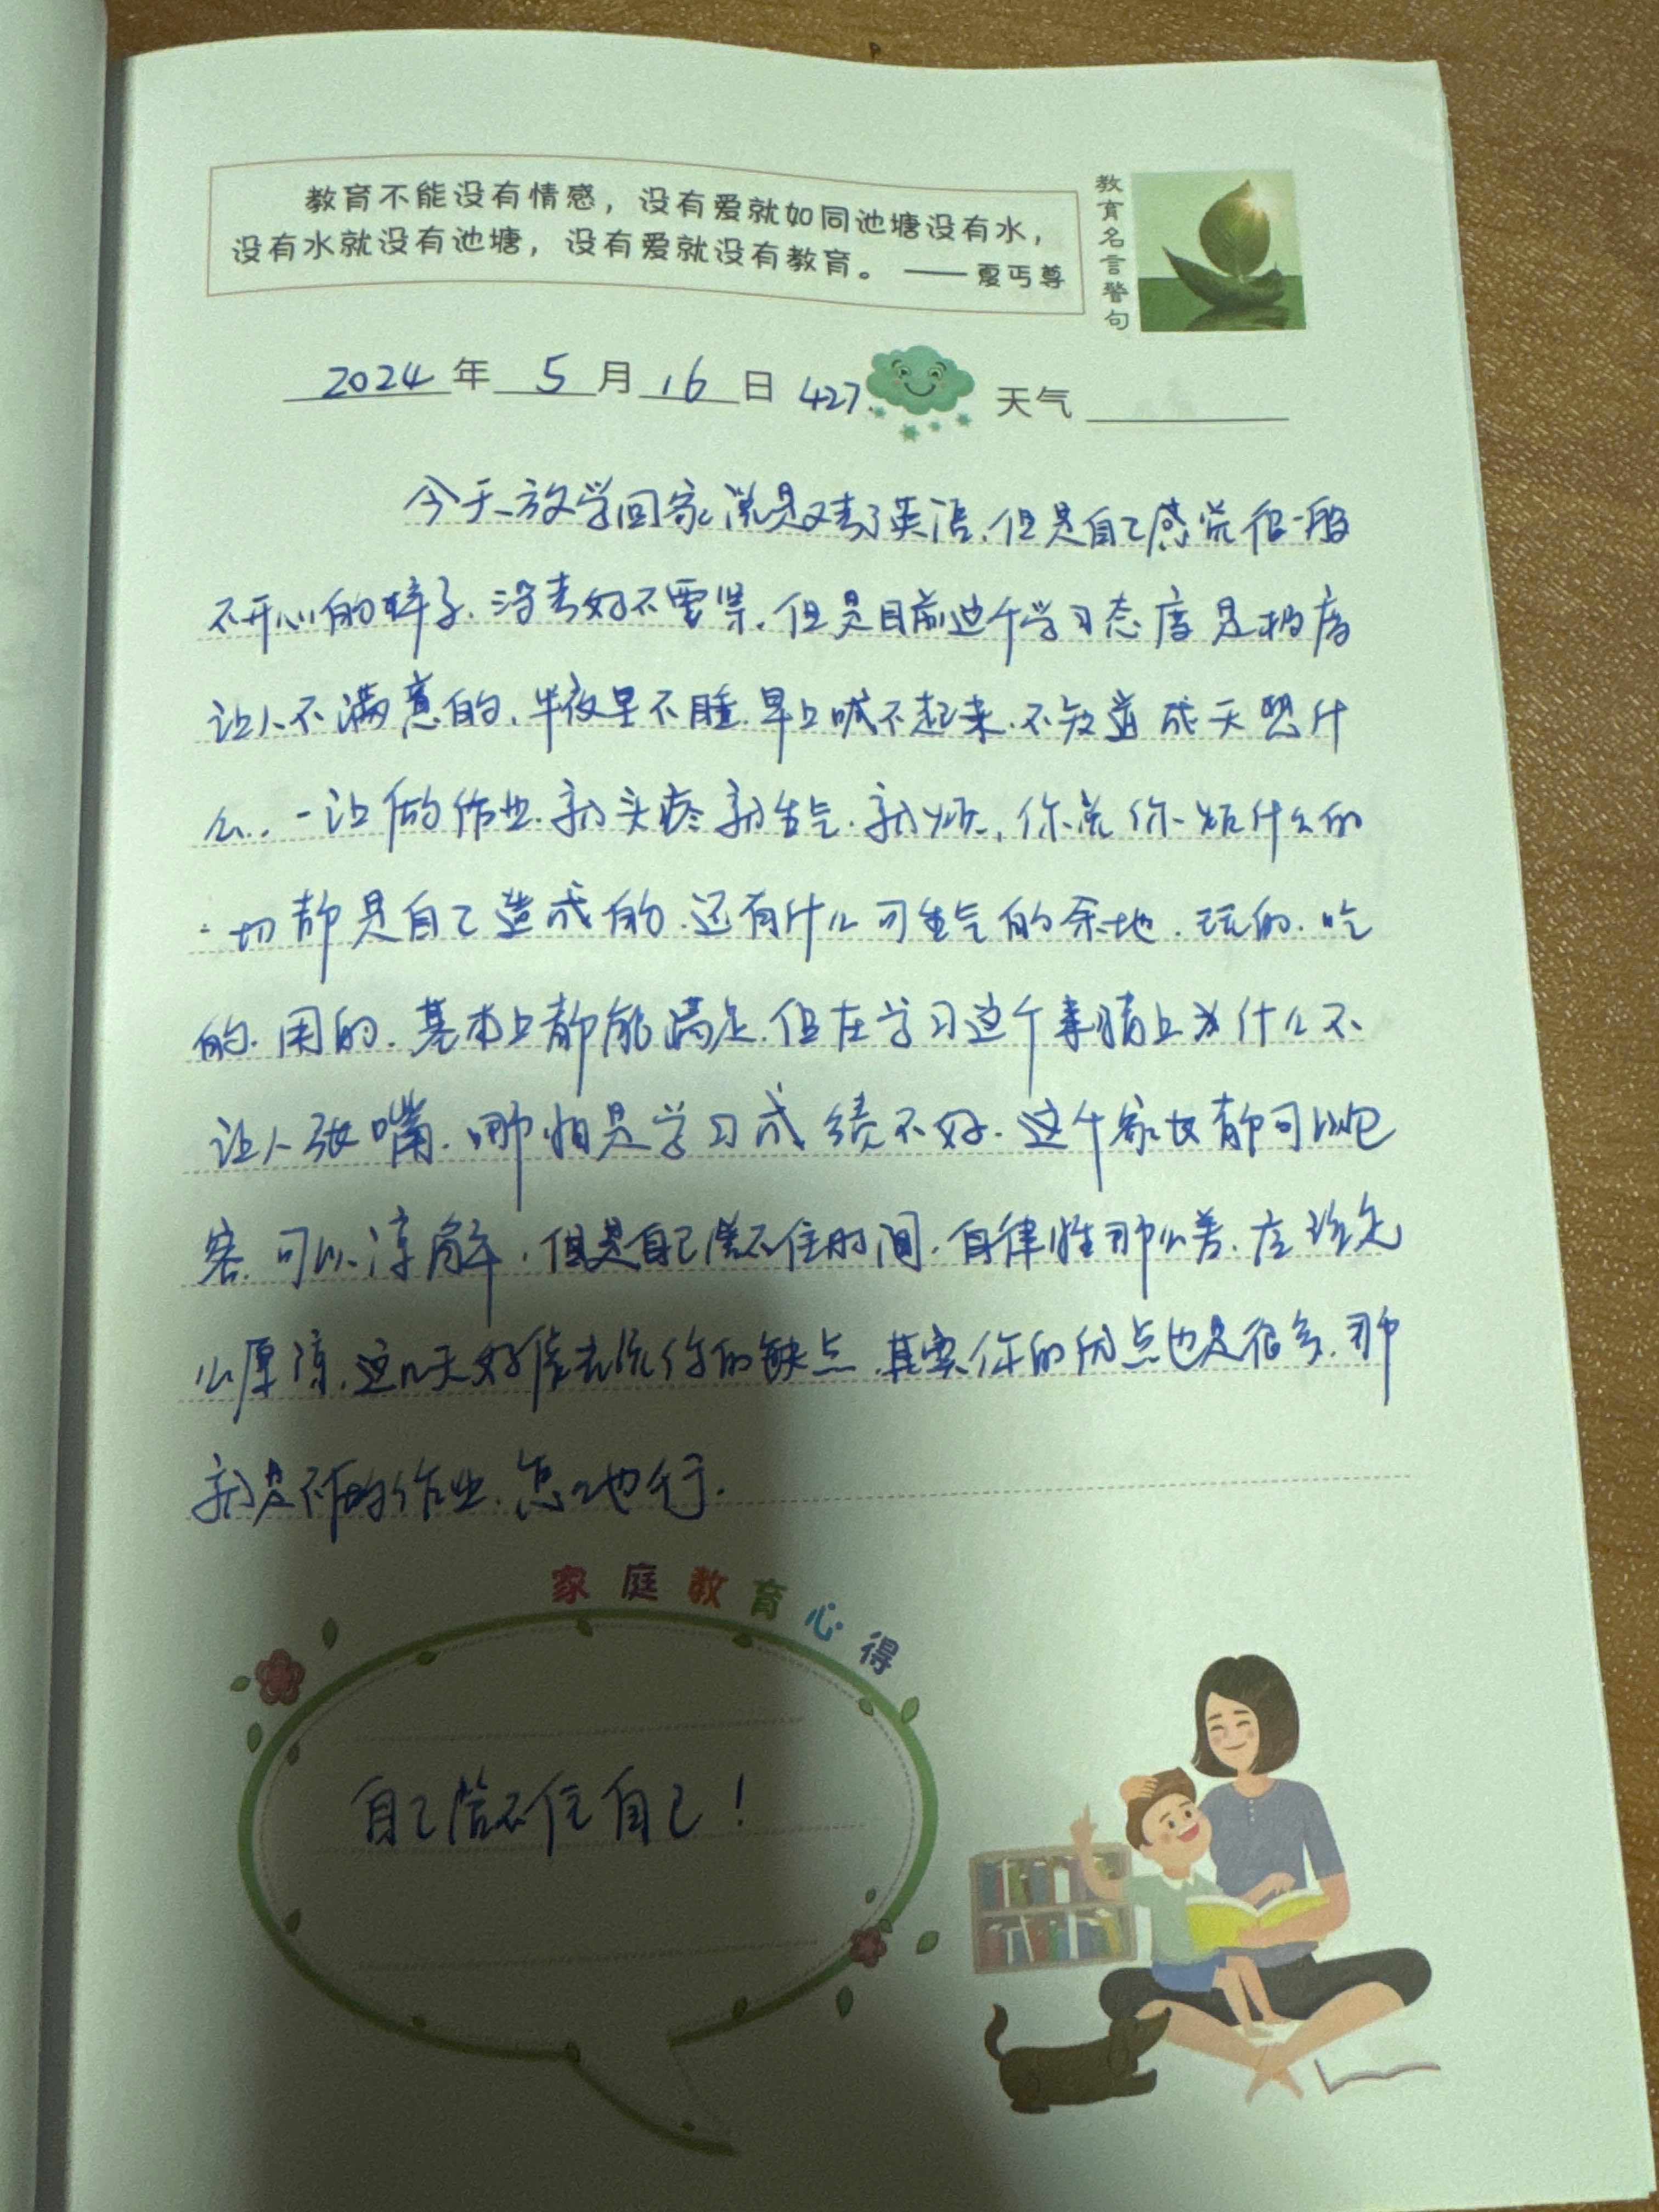 教育不能没有情感，没有爱就如同池塘没有水，
没有水就没有池塘，没有爱就没有教育。——夏丏尊
教育名言警句
2024年5月16日 427. 天气
今天放学回家说是又考了英语.但是自己感觉很一般
不开心的样子.没考好不要紧.但是目前这个学习态度是极度
让人不满意的.半夜里不睡.早上喊不起来.不知道成天想什
么..一让做作业.就头疼就生气.就烦.你说你烦什么的
一切都是自己造成的.还有什么可生气的余地.玩的.吃
的.用的.基本上都能满足.但在学习这个事情上为什么不
让人张嘴.哪怕是学习成绩不好.这个家长都可以包
容.可以谅解.但是自己管不住时间.自律性那么差.应该怎
么原谅.这几天好像光说你的缺点.其实你的优点也是很多.那
就是不做作业.怎么也行.
家庭教育心得
自己管不住自己！